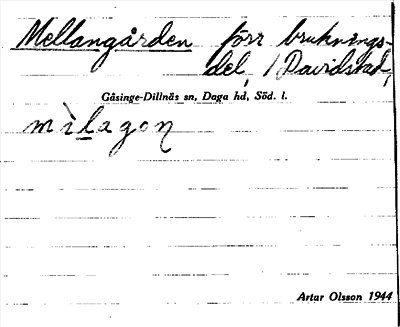 Mellangården förr bruknings-
del, i Davidstad,
Gåsinge-Dillnäs sn, Daga hd, Söd. l.
mìlagoɳ
Artar Olsson 1944